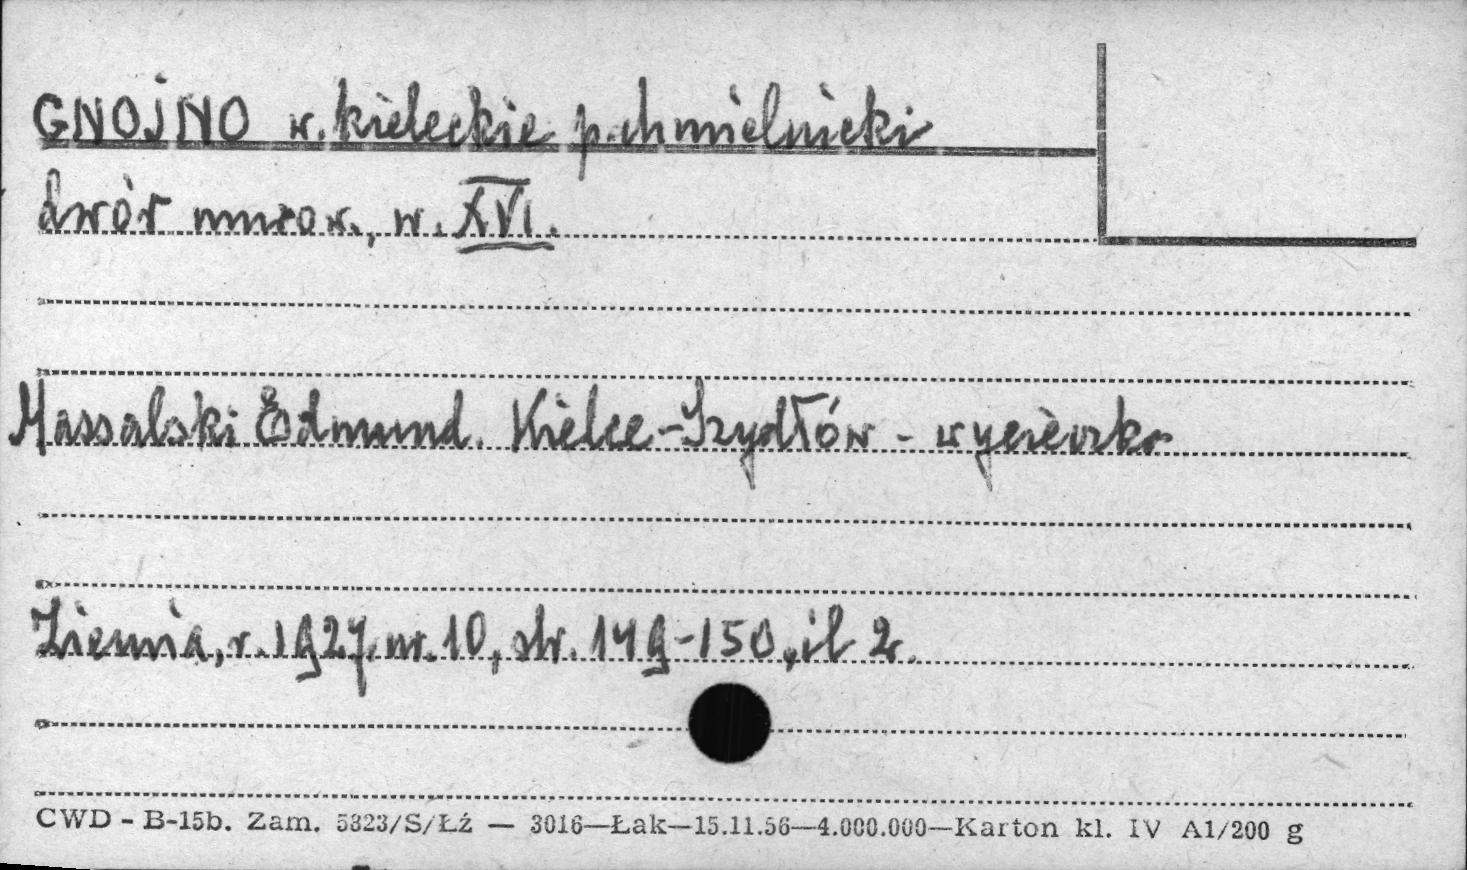 GNOJNO w. kieleckie p. chmielnicki
dwór murow., w. XVI.
Massalski Edmund. Kielce-Szydłów - wycieczka
Ziemia, r. 1927, nr. 10, str. 149-150, il 2.
CWD - B-15b. Zam. 5323/S/Łż — 3016—Łak—15.11.56—4.000.000—Karton kl. IV A1/200 g